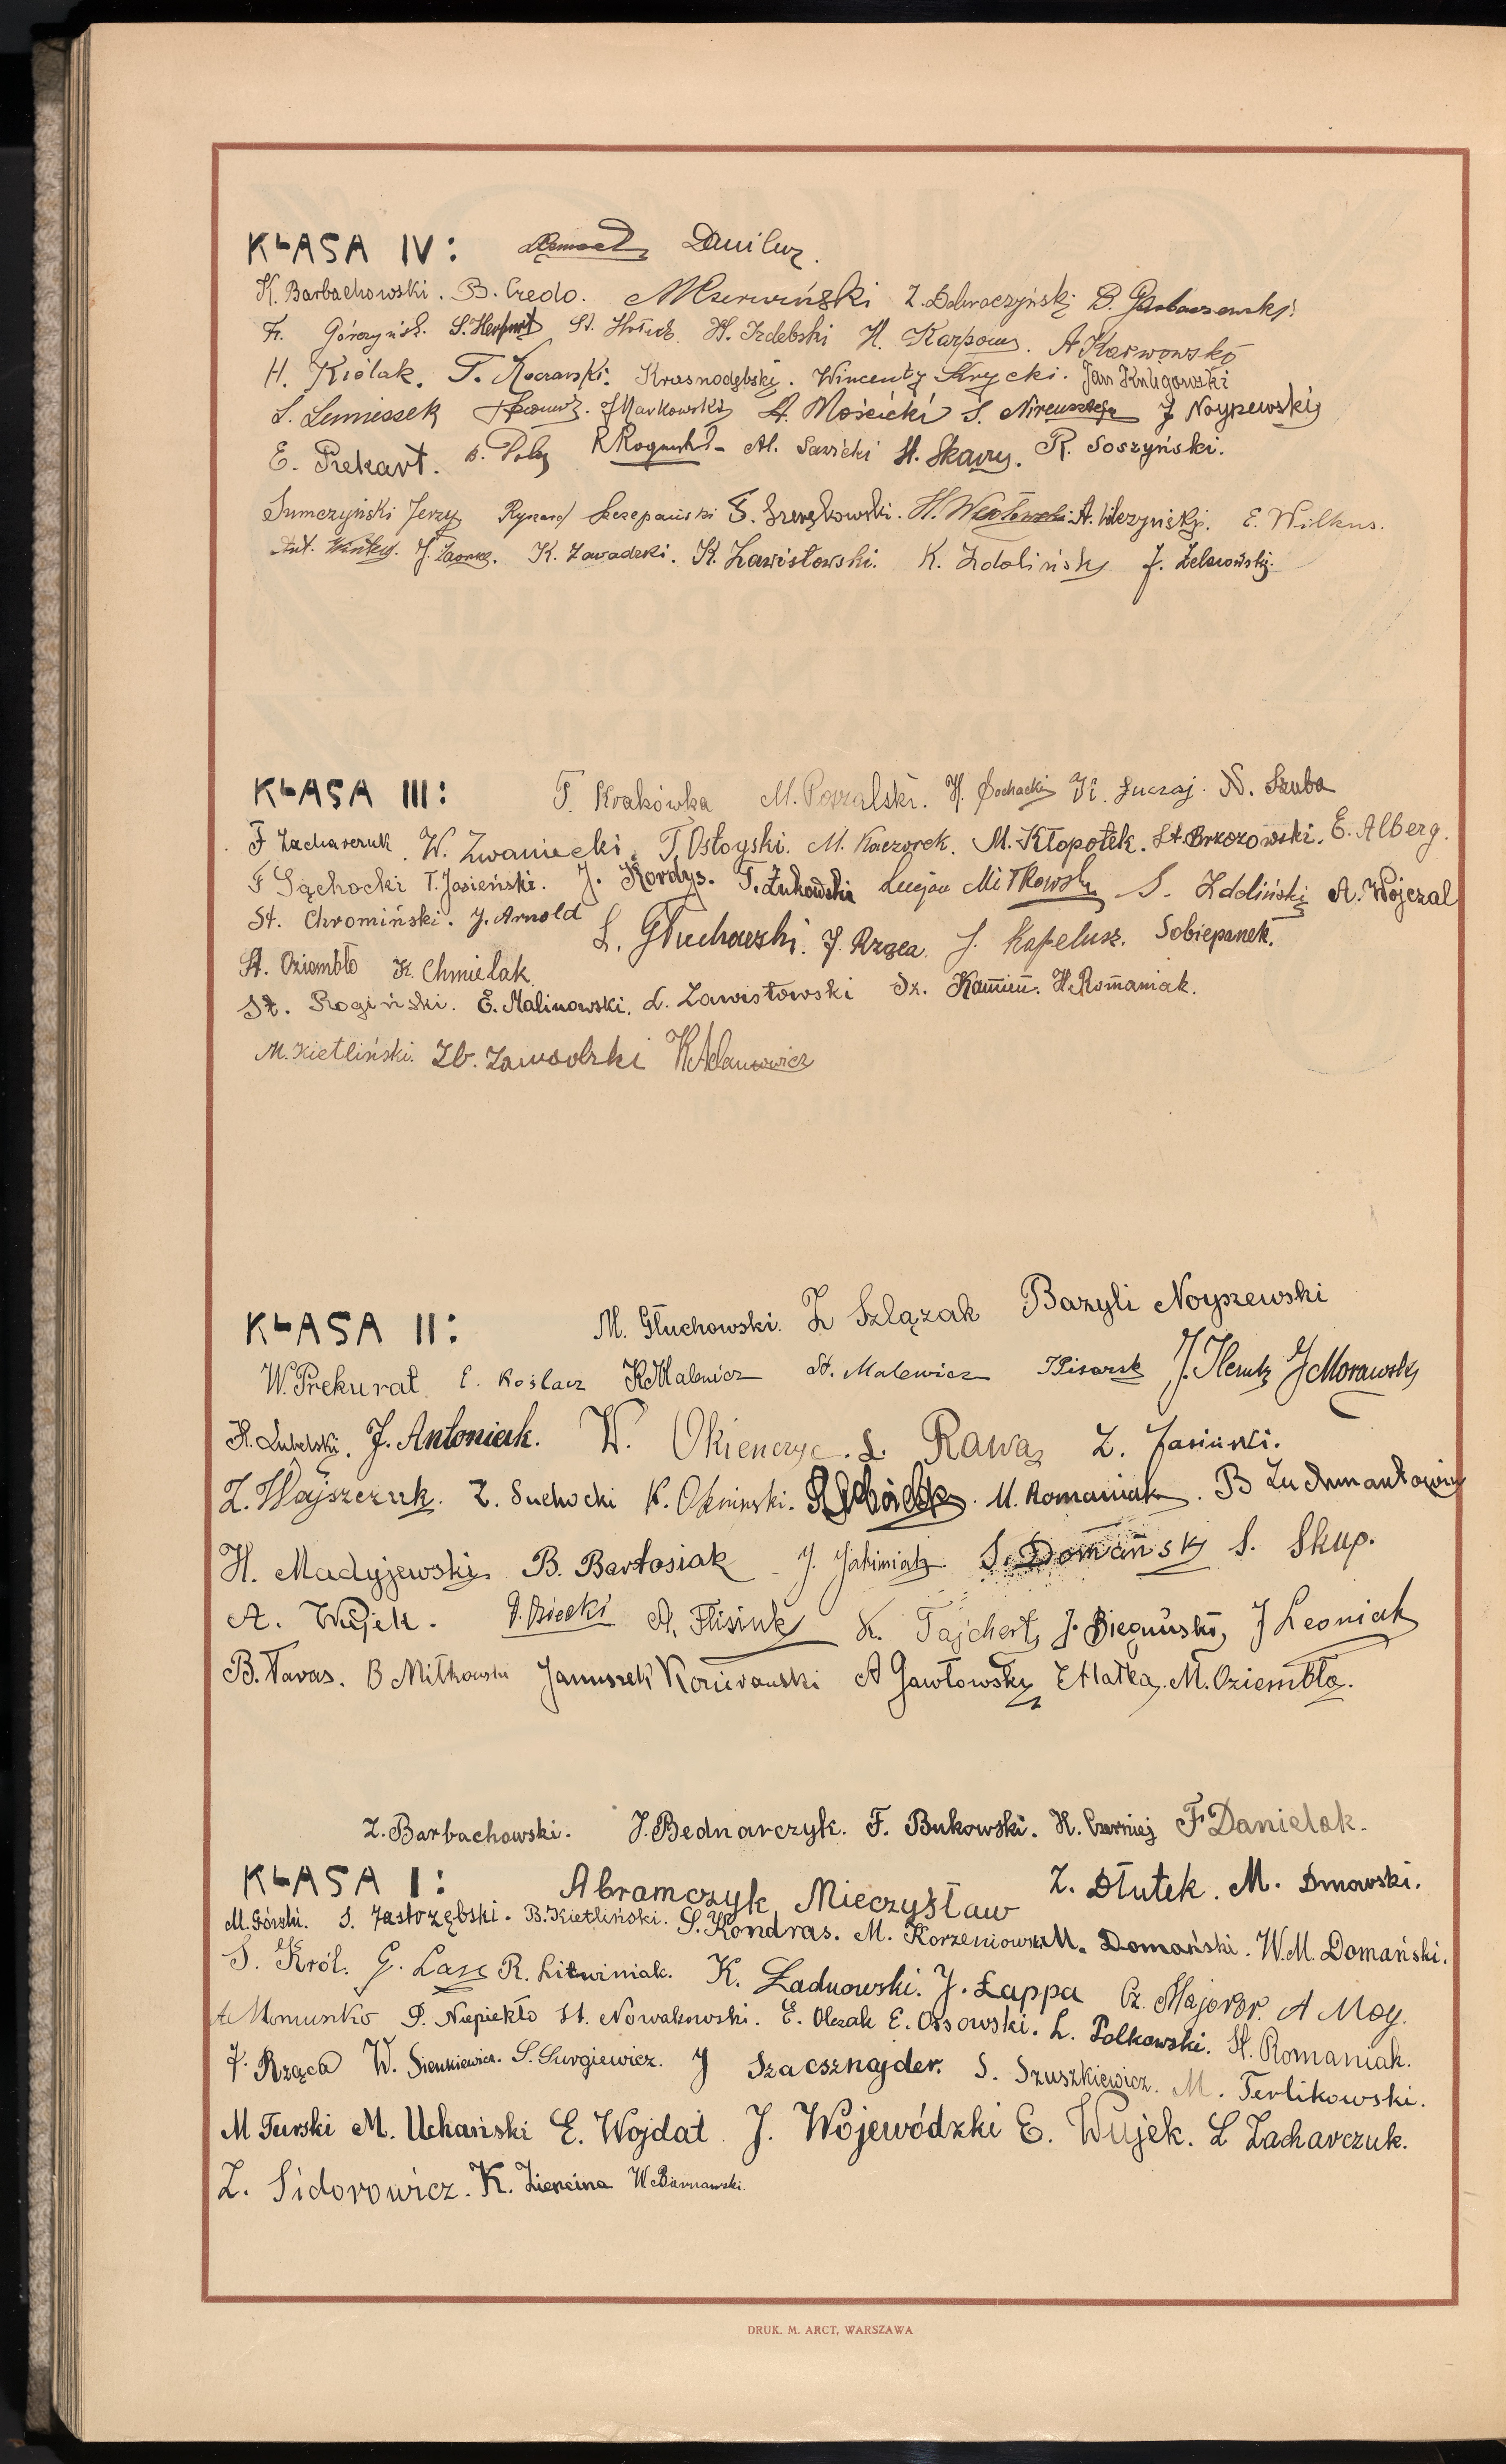 KLASA IV: Daniluz.
K. Barbachowski. B. Credo. Z. Dobroczyński B.
Fr. Górczyńsk. S. Herfurt St. H. Izdebski H. Karpow. A Karwowski
H. Kiólak. T. Koczarski. Krasnodębski. Wincenty Krycki. Jan
S. Lemieszek J Markowski A. Mościcki S. J Noyszewski
E. Prekart. Al. Sawicki St. Skawy. R. Soszyński.
Sumczyński Jerzy Ryszard Szczepański E. Wilkus.
Ant. K. Zawadzki. K. Zawistowski. K. Zdoliński J.
KLASA III: T. Krakówka M. Powalski. H. Sochacki K. Łuczaj. N. Szuba
F Zacharczuk W. Zwaniecki. T. Ostoyski. M. Kaczorek. M. Kłopotek. St. Brzozowski. E. Alberg.
F Sąchocki T. Jasieński. J. Kordys. T. Żukowski Lucjan Mitkowski S. Zdoliński A. Wójczal
St. Chromiński. J. Arnold L. Głuchowski. J. Rząca. J. Kapelusz. Sobiepanek.
St. Oziembło K. Chmielak.
St. Rogiński. E. Malinowski. L. Zawistowski Dz. Kamien. H. Romaniak.
M. Kietliński. Zb. Zawadzki K Adamowicz
KLASA II: M. Głuchowski. Z Szlązak Bazyli Noyszewski
W. Prekurat E. Koślacz K Malewicz St. Malewicz Pisarsk J. J Morawski
H. Lubelski. J. Antoniak. W. Okienczyc. L. Rawa Z. Jasiński.
Z. Wajszczuk. Z. Suchocki K. Okniński. M. Romaniak. B
H. Madyjewski. B. Bartosiak J. Jakimiak S. Domański S. Skup.
A. Wujek. A. Flisiuk K. Tajchert J. Biegański, J Leoniak
B. Tavas. B Mitkowski Januszek A Gawłowski E Matka. M. Oziembło.
Z. Barbachowski. J. Bednarczyk. F. Bukowski. H. Czerniej F Danielak.
KLASA I: Abramczyk Mieczysław Z. Dłutek. M. Dmowski.
M. Górski. S. Jastrzębski. B. Kietliński. S. Kondras. M. Korzeniowski M. Domański. W. M. Domański.
S. Król. G. Lasz R. Litwiniak. K. Ładnowski. J. Łappa Cz. Major A Moy.
A Momuszko P. Niepiekło St. Nowakowski. E. Olczak E. Ossowski. L. Polkowski. St. Romaniak.
F. Rząca W. Sienkiewicz. S. Surgiewicz. J Szacsznajder. S. Szuszkiewicz. M. Terlikowski.
M Turski M. Uchański E. Wojdat J. Wojewódzki E. Wujek. L Zacharczuk.
Z. Sidorowicz. K. Ziencina W. Biernawski.
DRUK. M. ARCT, WARSZAWA